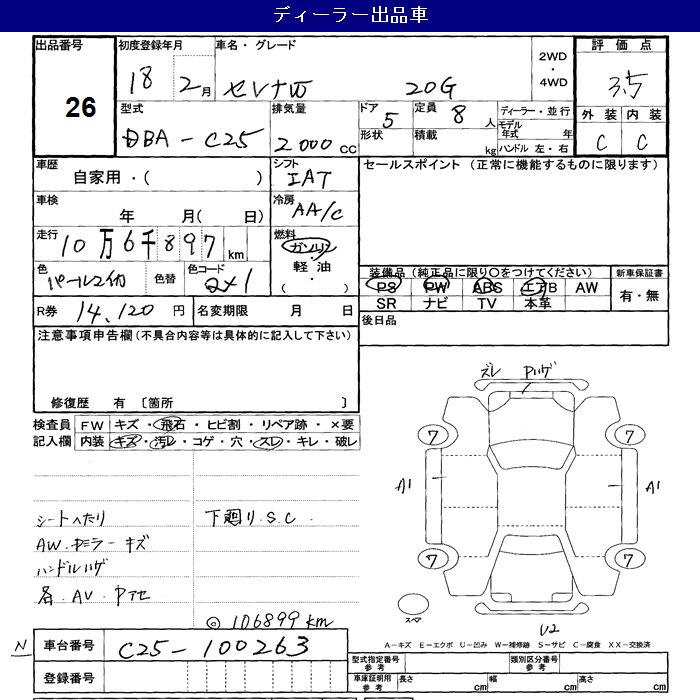 ディーラー出品車
出品番号 初度登録年月 車名・グレード 評価点
26 18 2月 セレナW 20G 2WD・4WD 3.5
型式 排気量 ドア 定員 ディーラー・並行 外装 内装
DBA-C25 2000CC 5 8人 モデル年式 年 C C
形状 積載 kg ハンドル 左・右
車歴 シフト セールスポイント (正常に機能するものに限ります)
自家用・( ) IAT
車検 冷房
年 月( 日) AA/C
走行 燃料
10万6千897km ガソリン・軽油・( )
色 色替 色コード 装備品 (純正品に限り○をつけてください) 新車保証書
パール2色 QX1 PS PW ABS エアB AW 有・無
SR ナビ TV 本革
R券 14,120円 名変期限 月 日 後日品
注意事項申告欄(不具合内容等は具体的に記入して下さい)
修復歴 有 〔箇所 〕
検査員 FW キズ・飛石・ヒビ割・リペア跡・×要
記入欄 内装 キズ・汚レ・コゲ・穴・スレ・キレ・破レ
ズレ Pハゲ
7 7
A1 A1
7 7
スペア
U2
シートへたり 下廻りS.C.
AW・ドミラーキズ
ハンドルハゲ
各AV・Pアセ
◎106899km
A-キズ E-エクボ U-凹み W-補修跡 S-サビ C-腐食 XX-交換済
N 車台番号 C25-100263
登録番号
型式指定番号 参考 類別区分番号 参考
車庫証明用 参考 長さ cm 幅 cm 高さ cm